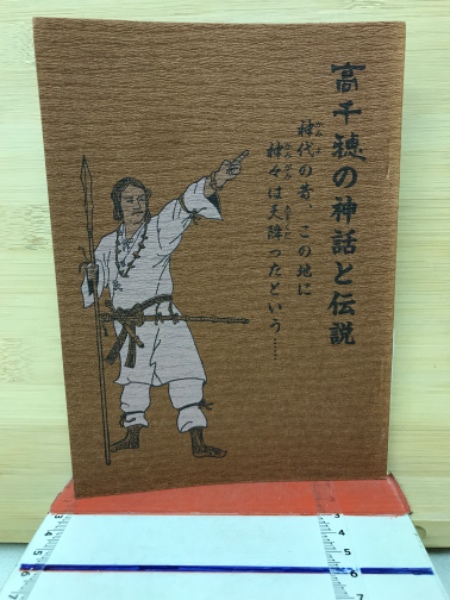 高千穂の神話と伝説
神代の昔、この地に
神々は天降ったという……
3
4
5
6
7
3
4
5
6
7